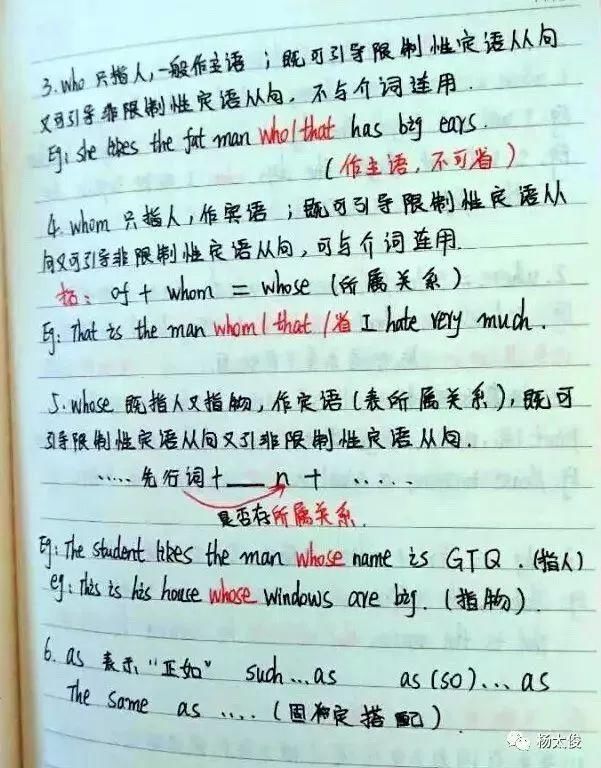 3. who 只指人,一般作主语;既可引导限制性定语从句
又可引导非限制性定语从句,不与介词连用.
Eg: she likes the fat man who/that has big ears.
(作主语,不可省)
4. whom 只指人,作宾语;既可引导限制性定语从
句又可引导非限制性定语从句,可与介词连用.
of + whom = whose (所属关系)
Eg: That is the man whom/that/省 I hate very much.
5. whose 既指人又指物,作定语(表所属关系),既可
引导限制性定语从句又引非限制性定语从句.
..... 先行词+ ___ n + .....
是否存所属关系.
Eg: The student likes the man whose name is GTQ. (指人)
eg: This is his house whose windows are big. (指物).
6. as 表示"正如" such...as as (so)... as
The same as .... (固定搭配)
杨太俊